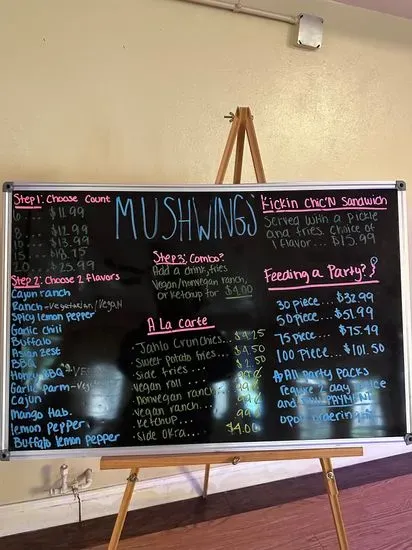 MUSHWINGS
Step 1: Choose Count
6 ... $11.99
8 ... $12.99
10 ... $13.99
15 ... $18.75
20 ... $25.99
Step 2: Choose 2 flavors
Cajun ranch
Ranch - vegetarian/vegan
Spicy lemon pepper
Garlic chili
Buffalo
Asian zest
BBQ
Honey BBQ
Garlic parm - Ve
Cajun
Mango Hab.
lemon pepper
Buffalo lemon pepper
Step 3: Combo?
Add a drink, fries
Vegan/nonvegan ranch,
or ketchup for $4.00
A la carte
Jahto Crunchies... $4.25
Sweet potato fries... $4.50
Side fries ....
Vegan roll ....
Nonvegan ranch...
Vegan ranch...
Ketchup...
Side okra... $4.00
Kickin Chic'N Sandwich
Served with a pickle
and fries. Choice of
1 flavor... $15.99
Feeding a Party?
30 Piece... $32.99
50 Piece... $51.99
75 Piece... $75.49
100 Piece... $101.50
All party packs
require 2 day
and PAYMENT
upon ordering